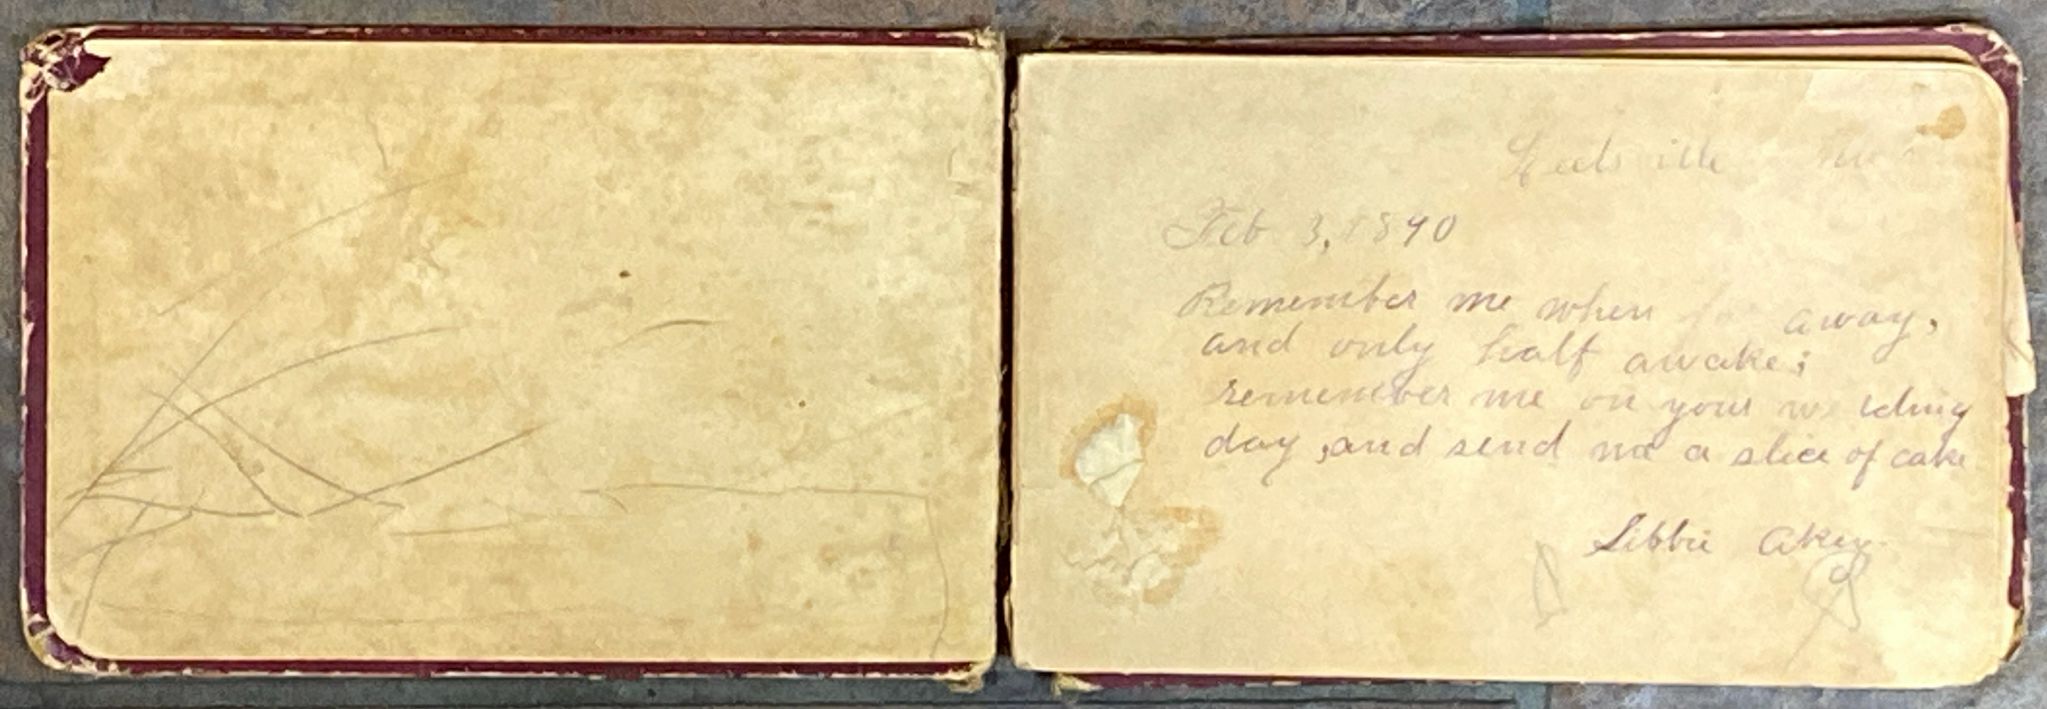 Feb 3, 1890
Remember me when far away,
and only half awake;
remember me on your wedding
day, and send me a slice of cake
Libbie Akey